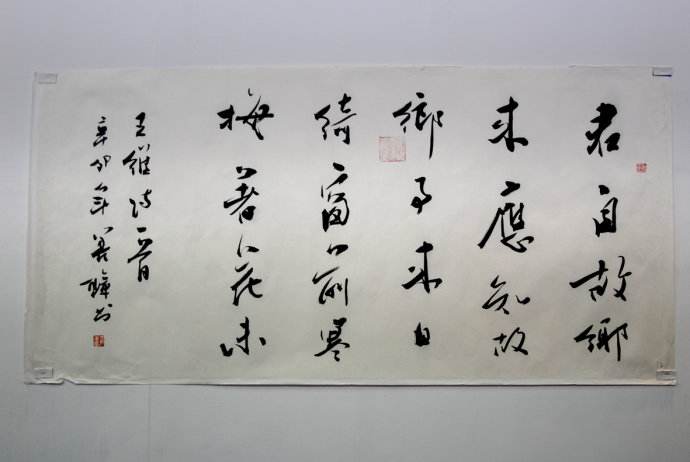 君自故鄉
来應知故
鄉事来日
綺窗前寒
梅著花未
王維诗一首
辛卯年书